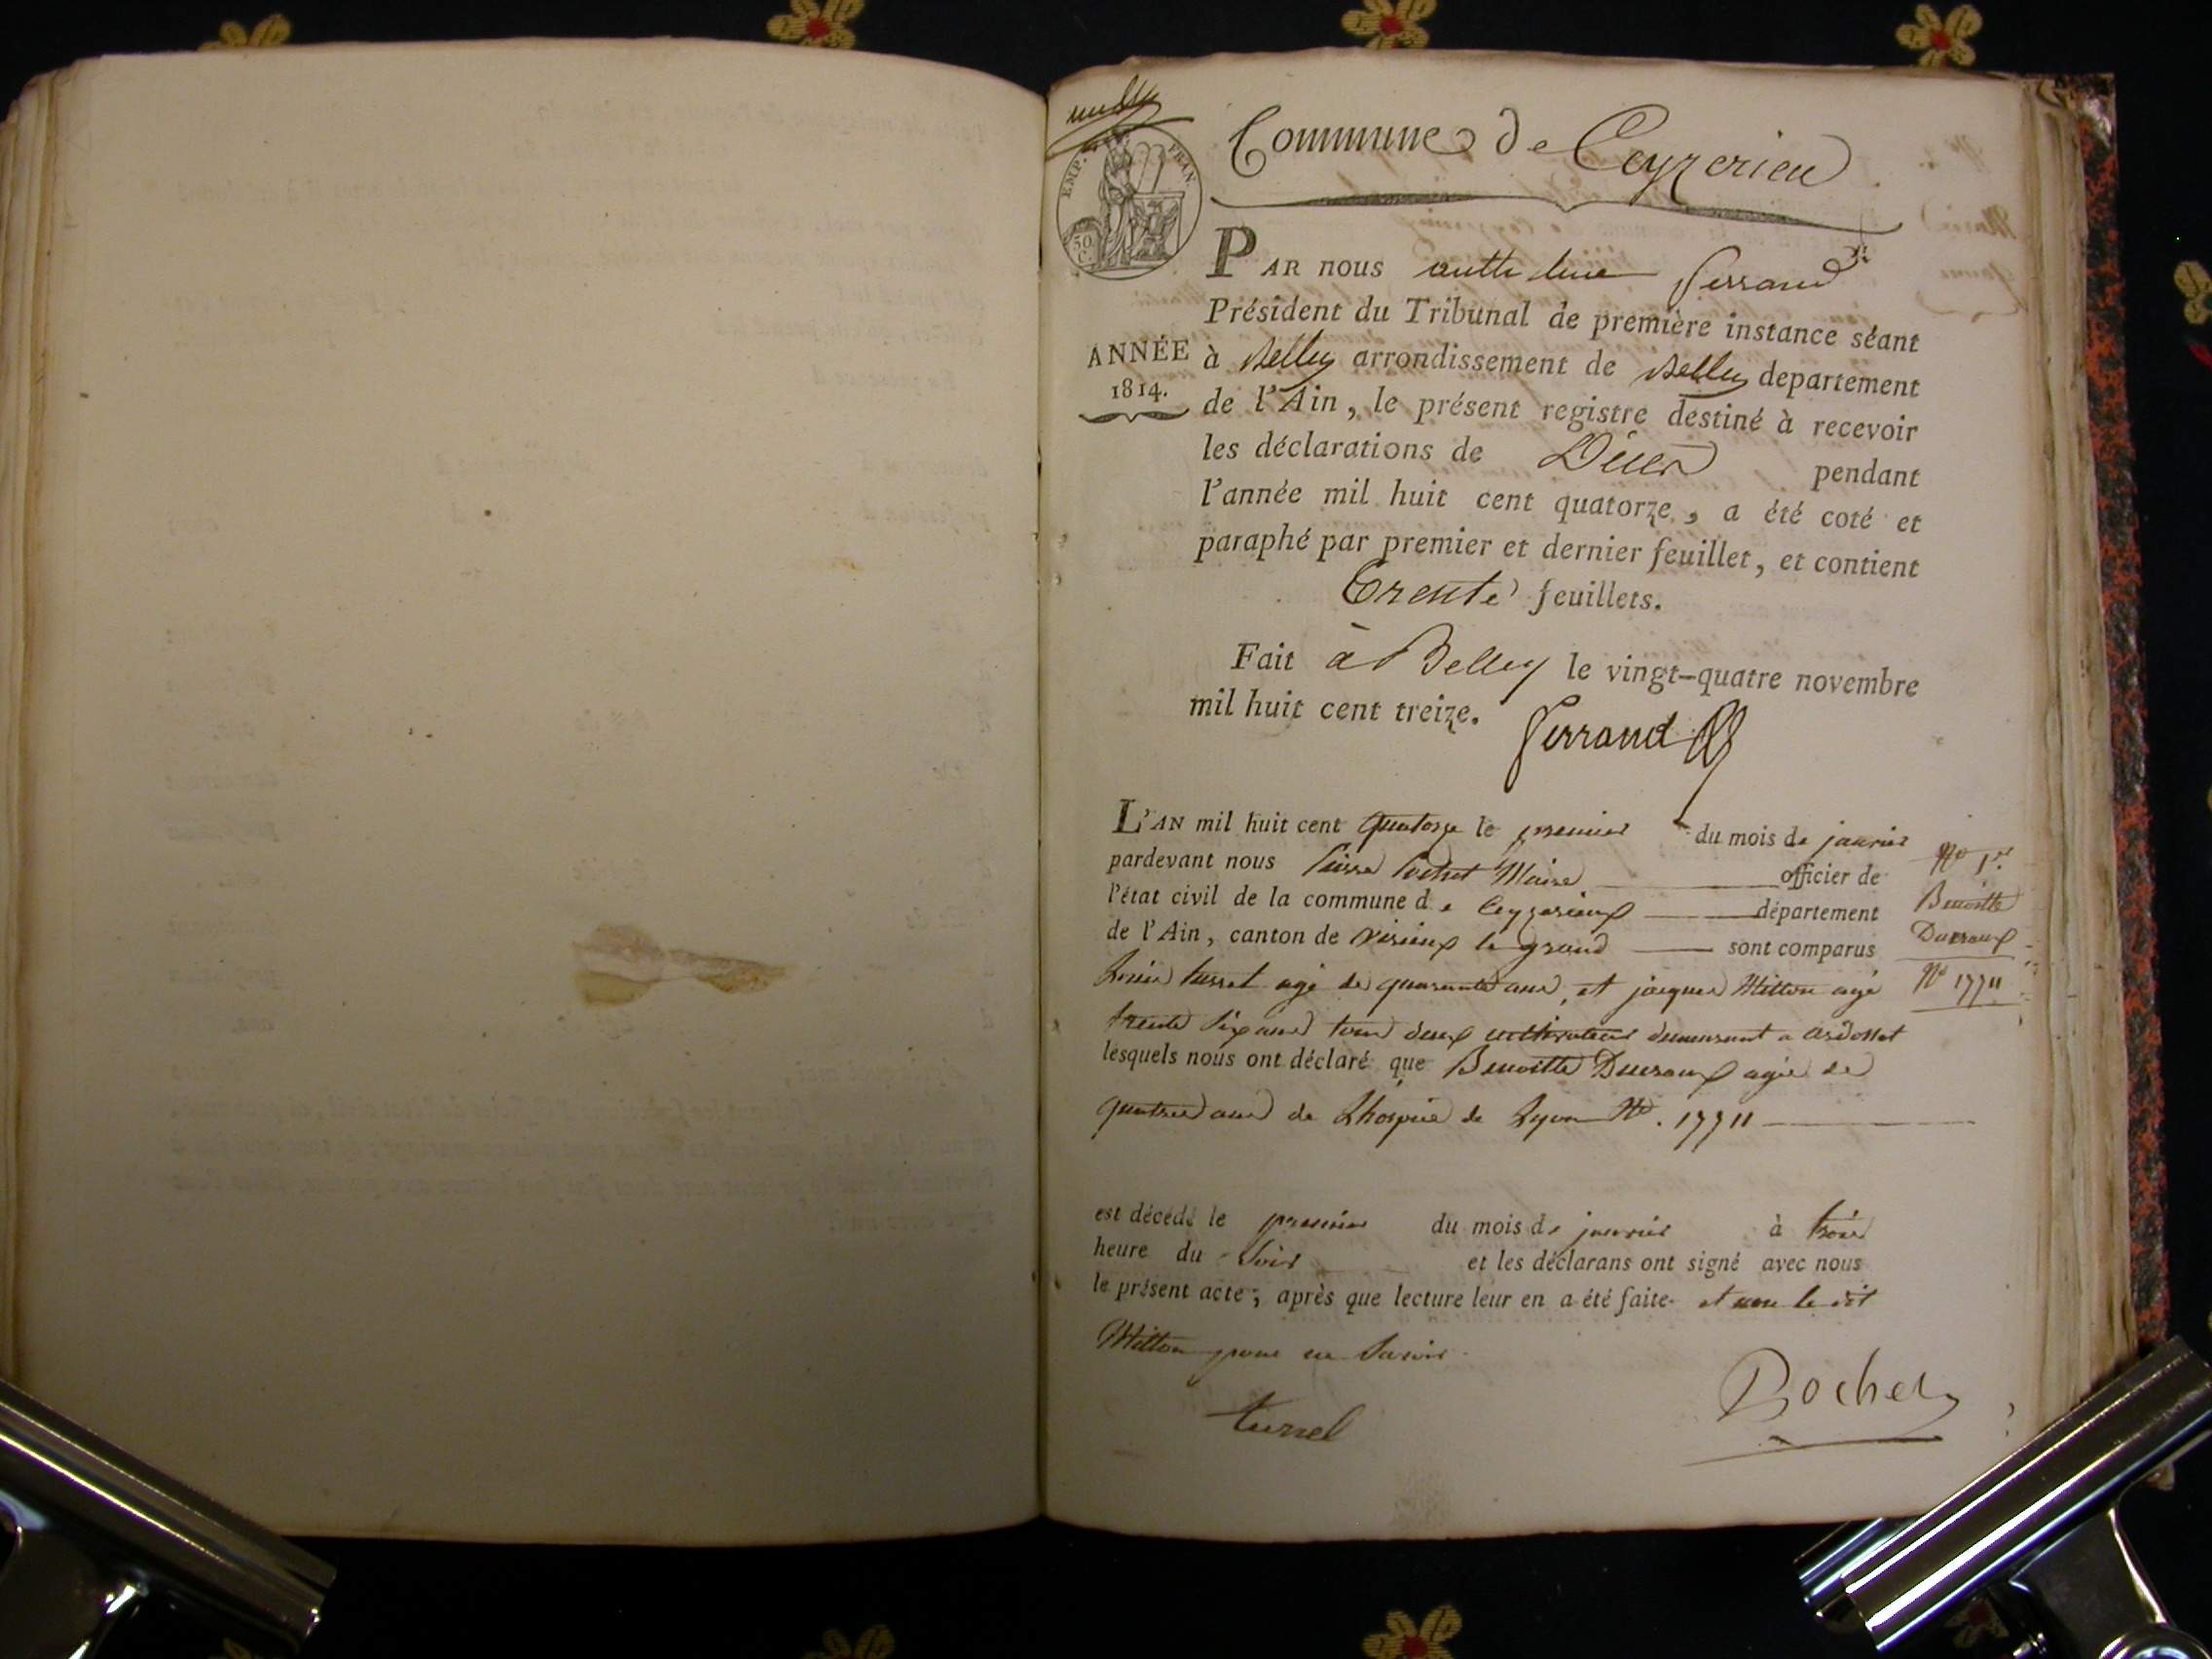 Commune de Ceyzerieu
EMP. FRAN.
50
C.
PAR nous Ferrand
Président du Tribunal de première instance séant
ANNÉE
1814.
à Belley arrondissement de Belley departement
de l'Ain, le présent registre destiné à recevoir
les déclarations de Décès pendant
l'année mil huit cent quatorze, a été coté et
paraphé par premier et dernier feuillet, et contient
Trente feuillets.
Fait à Belley le vingt-quatre novembre
mil huit cent treize.
Ferrand
L'AN mil huit cent quatorze le premier du mois de janvier
pardevant nous Maire officier de
l'état civil de la commune de Ceyzerieux département
de l'Ain, canton de virieux le grand sont comparus
agé de quarante ans, et jacques Mitton agé
trente six ans tous deux cultivateurs demeurant a ardosset
lesquels nous ont déclaré que Benoitte Ducraux agée de
quatres ans de Lhospice de Lyon No. 17711
est décédé le premier du mois de janvier à trois
heure du soir et les déclarans ont signé avec nous
le présent acte; après que lecture leur en a été faite et non le dit
Mitton pour ne savoir
turrel
Bochet
No 1er
Benoitte
Ducraux
No 17711